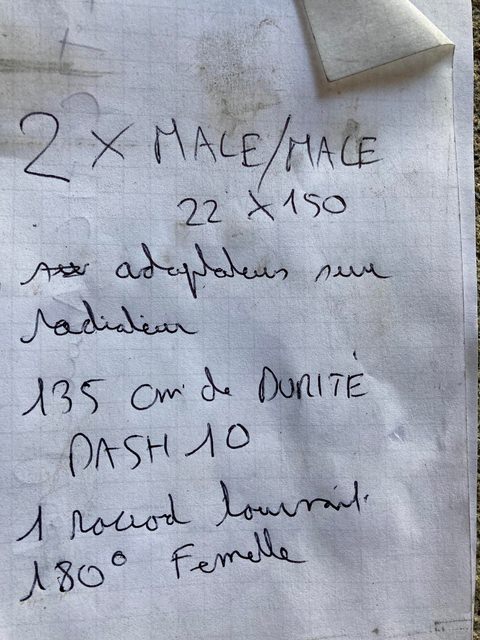 2 X MALE/MALE
22 X 150
adaptateurs sur
radiateur
135 cm de DURITÉ
DASH 10
1 raccod tournant
180° Femelle